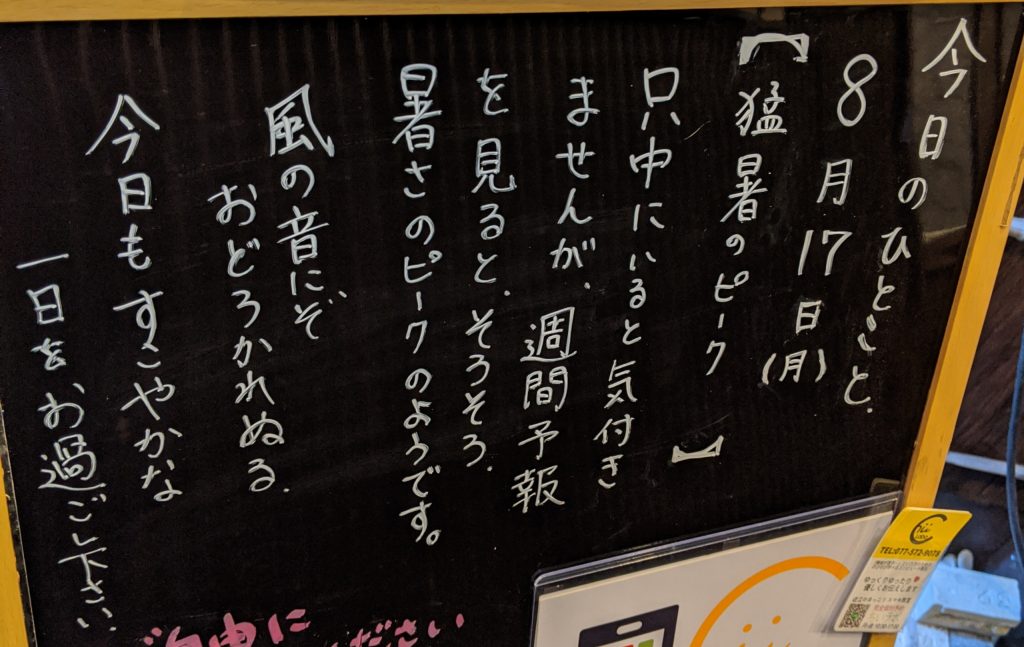 今日のひとごと.
8月17日(月)
【猛暑のピーク】
只中にいると気付き
ませんが、週間予報
を見ると、そろそろ、
暑さのピークのようです。
風の音にぞ
おどろかれぬる.
今日もすこやかな
一日をお過ごし下さい.
ご自由に
ください
TEL:077-572-9078
ゆっくりゆったり
優しくお伝えします